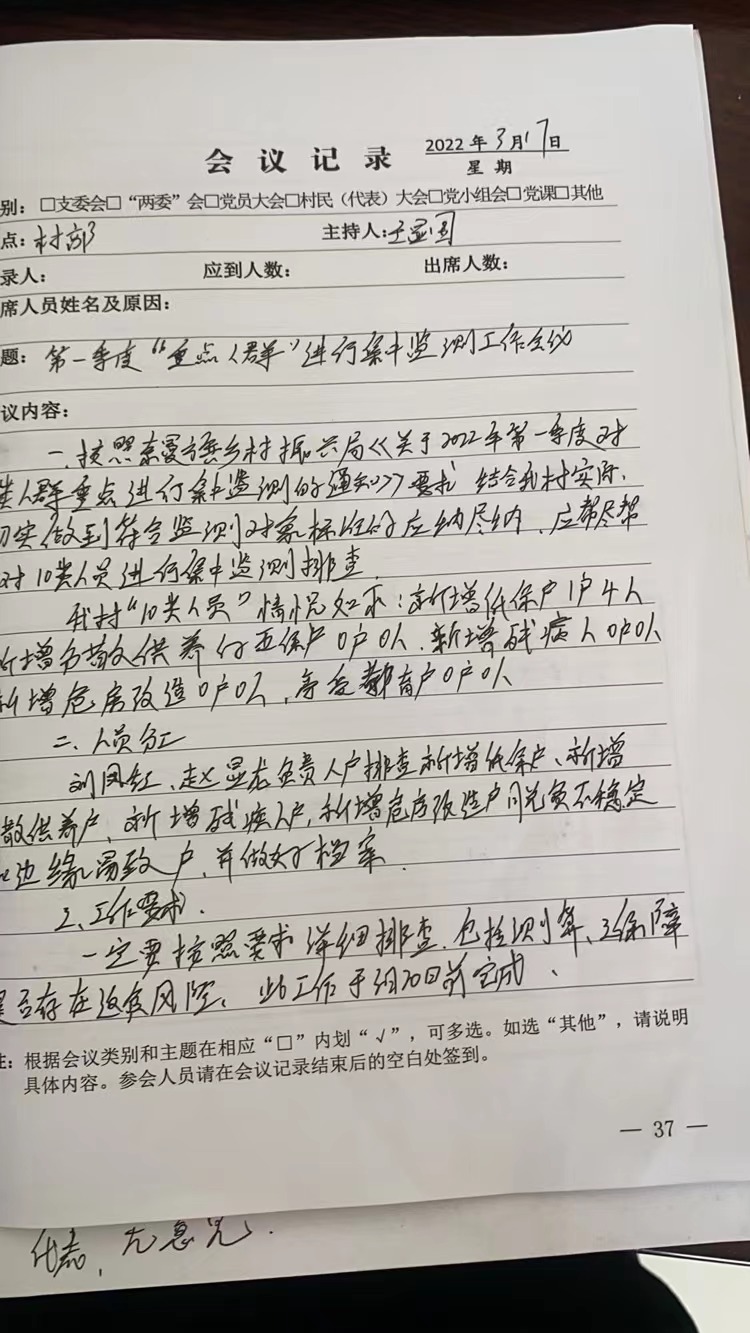 会议记录 2022年3月17日
星期
别：□支委会□“两委”会□党员大会□村民（代表）大会□党小组会□党课□其他
点：村部 主持人：王显国
录人： 应到人数： 出席人数：
席人员姓名及原因：
题：第一季度“重点人群”进行集中监测工作会议
议内容：
一、按照 乡村振兴局《关于2022年第一季度对
类人群重点进行集中监测的通知》要求 结合我村实际，
切实做到符合监测对象标准的应纳尽纳、应帮尽帮
对10类人员进行集中监测排查
我村“10类人员”情况如下：新增低保户1户4人
新增分散供养 户0户0人、新增残疾人0户0人
新增危房改造0户0人， 教育户0户0人
二、人员分工
刘凤红、赵显龙负责入户排查新增低保户、新增
散供养户、新增残疾人户，新增危房改造户 脱贫不稳定
边缘易致 户，并做好档案.
三、工作要求.
一定要按照要求详细排查，包括测算、三保障
是否存在返贫风险、此工作于3月20日前完成、
注：根据会议类别和主题在相应“□”内划“√”，可多选。如选“其他”，请说明
具体内容。参会人员请在会议记录结束后的空白处签到。
— 37 —
代表，无意见.